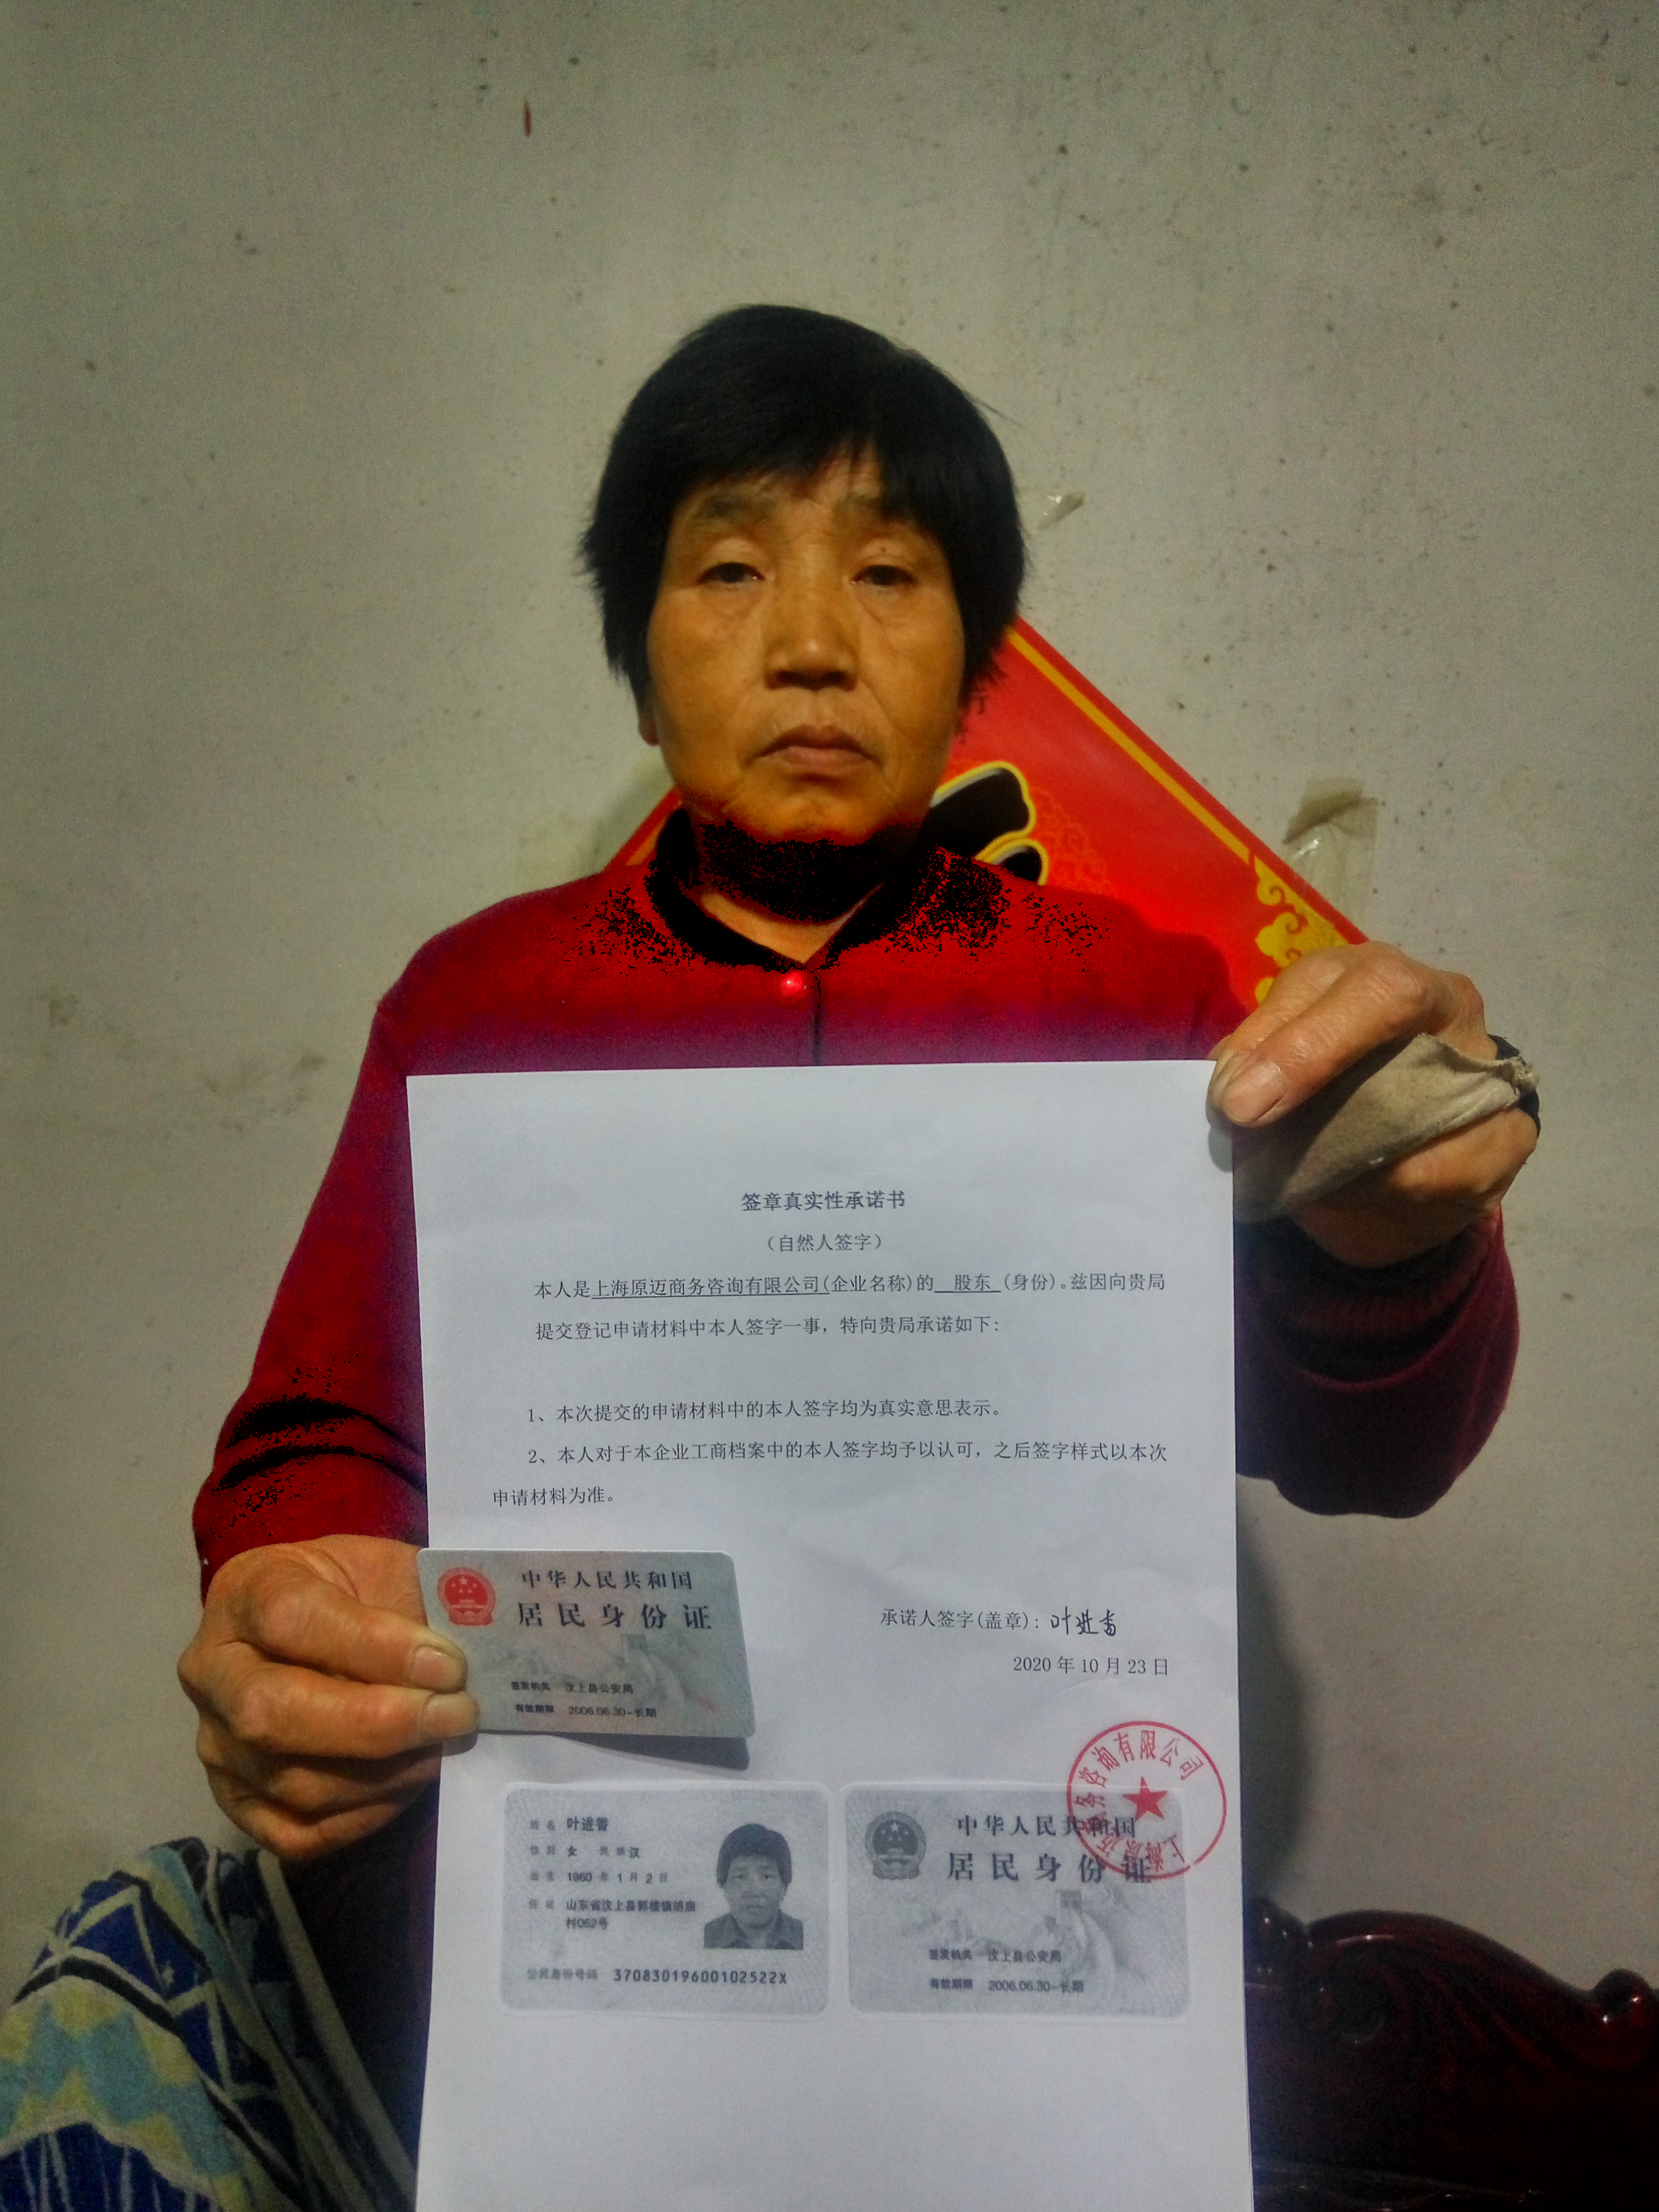 签章真实性承诺书
（自然人签字）
本人是上海原迈商务咨询有限公司(企业名称)的 股东 (身份)。兹因向贵局
提交登记申请材料中本人签字一事，特向贵局承诺如下：
1、本次提交的申请材料中的本人签字均为真实意思表示。
2、本人对于本企业工商档案中的本人签字均予以认可，之后签字样式以本次
申请材料为准。
中华人民共和国
居民身份证
签发机关 汶上县公安局
有效期限 2006.06.30-长期
承诺人签字(盖章)：叶进香
2020 年 10 月 23 日
上海原迈商务咨询有限公司
姓名 叶进香
性别 女 民族 汉
出生 1960 年 1 月 2 日
住址 山东省汶上县郭楼镇
村062号
公民身份号码 37083019600102522X
中华人民共和国
居民身份证
签发机关 汶上县公安局
有效期限 2006.06.30-长期